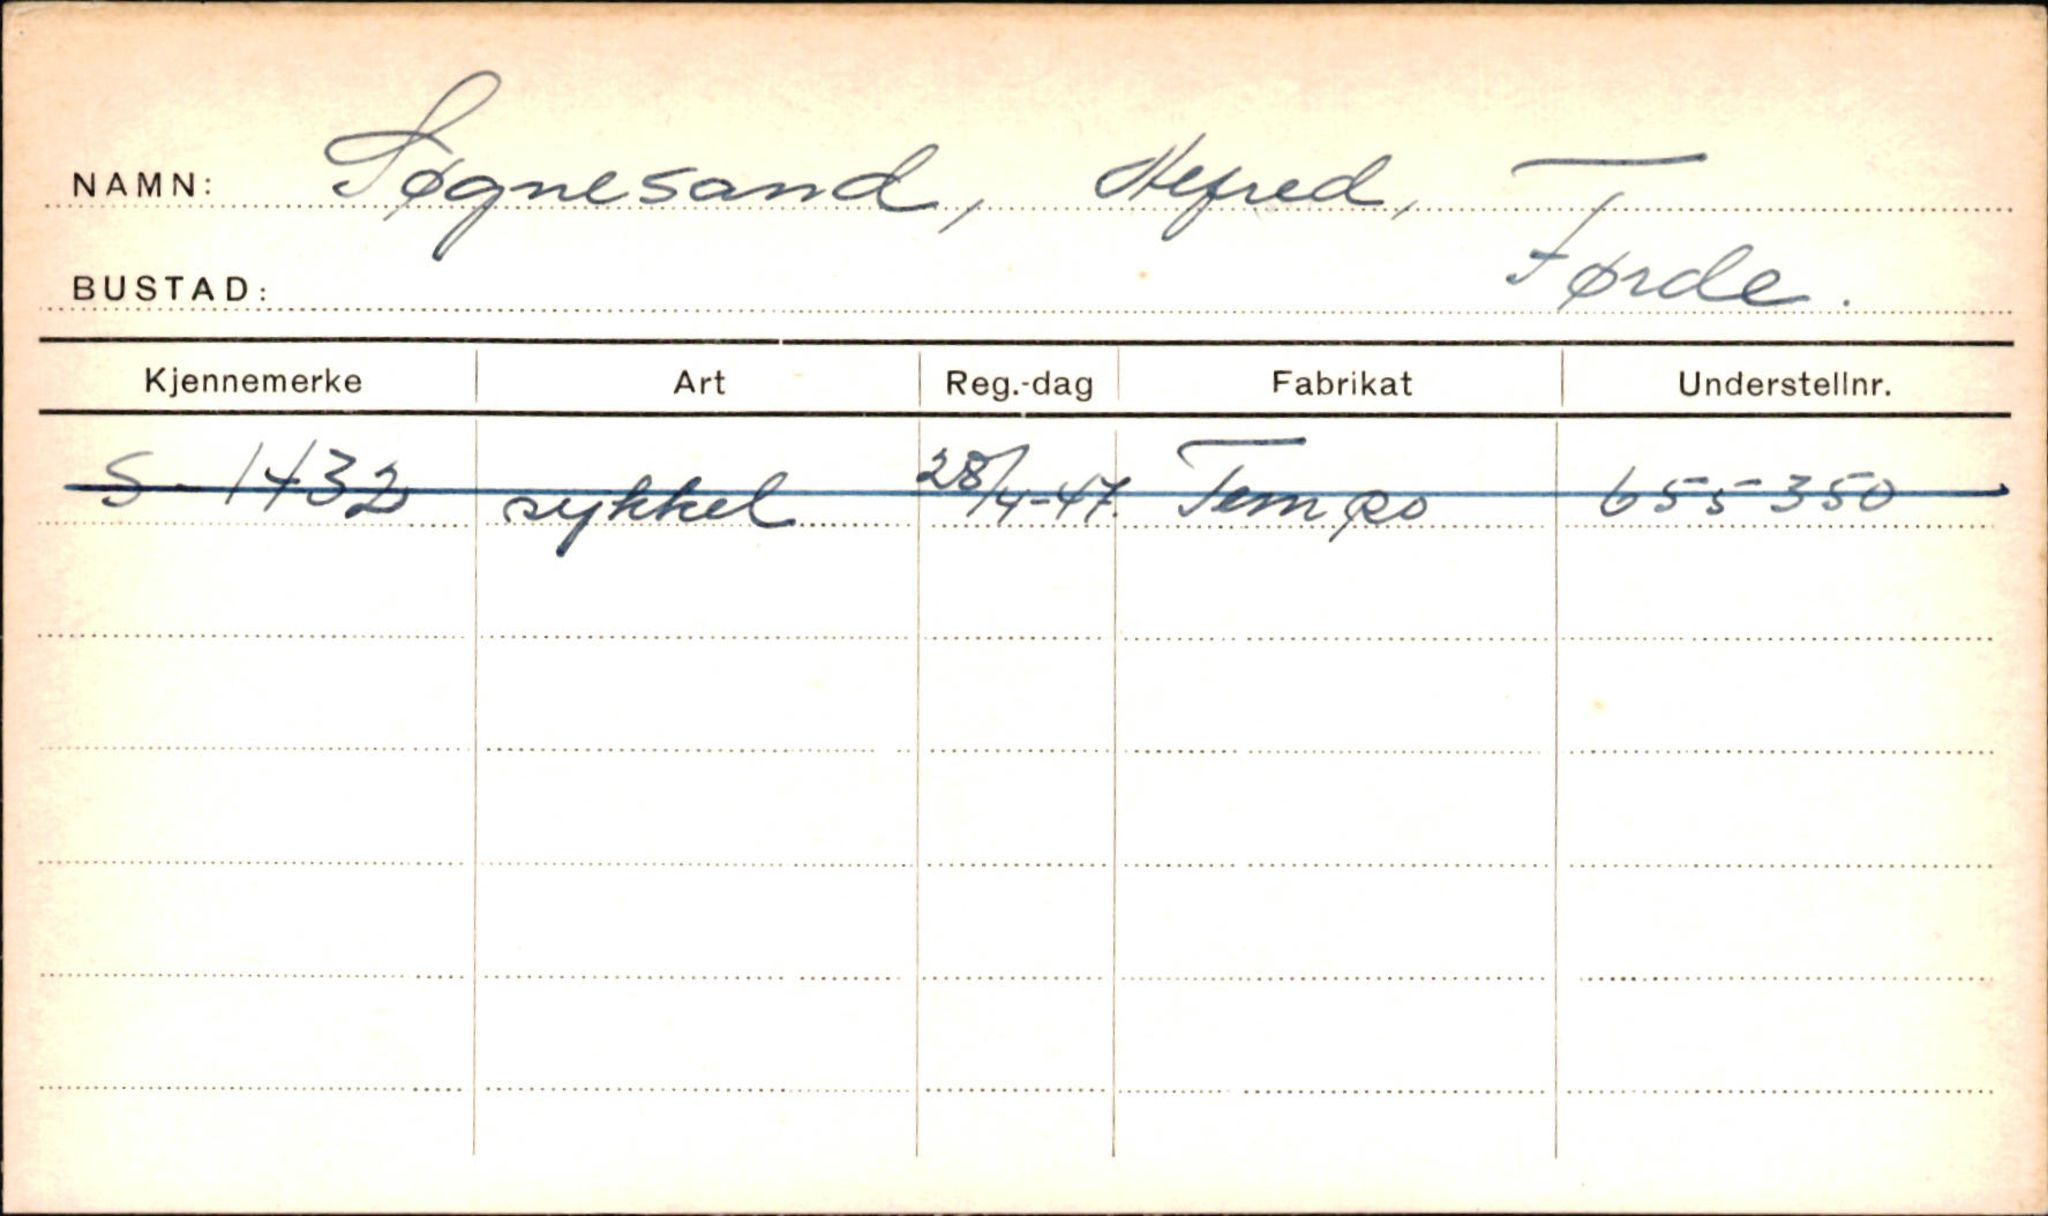 NAMN: Søgnesand, Hefred,
BUSTAD: Førde.
Kjennemerke Art Reg.-dag Fabrikat Understellnr.
S-1432 sykkel 28/4-47. Tempo 655350